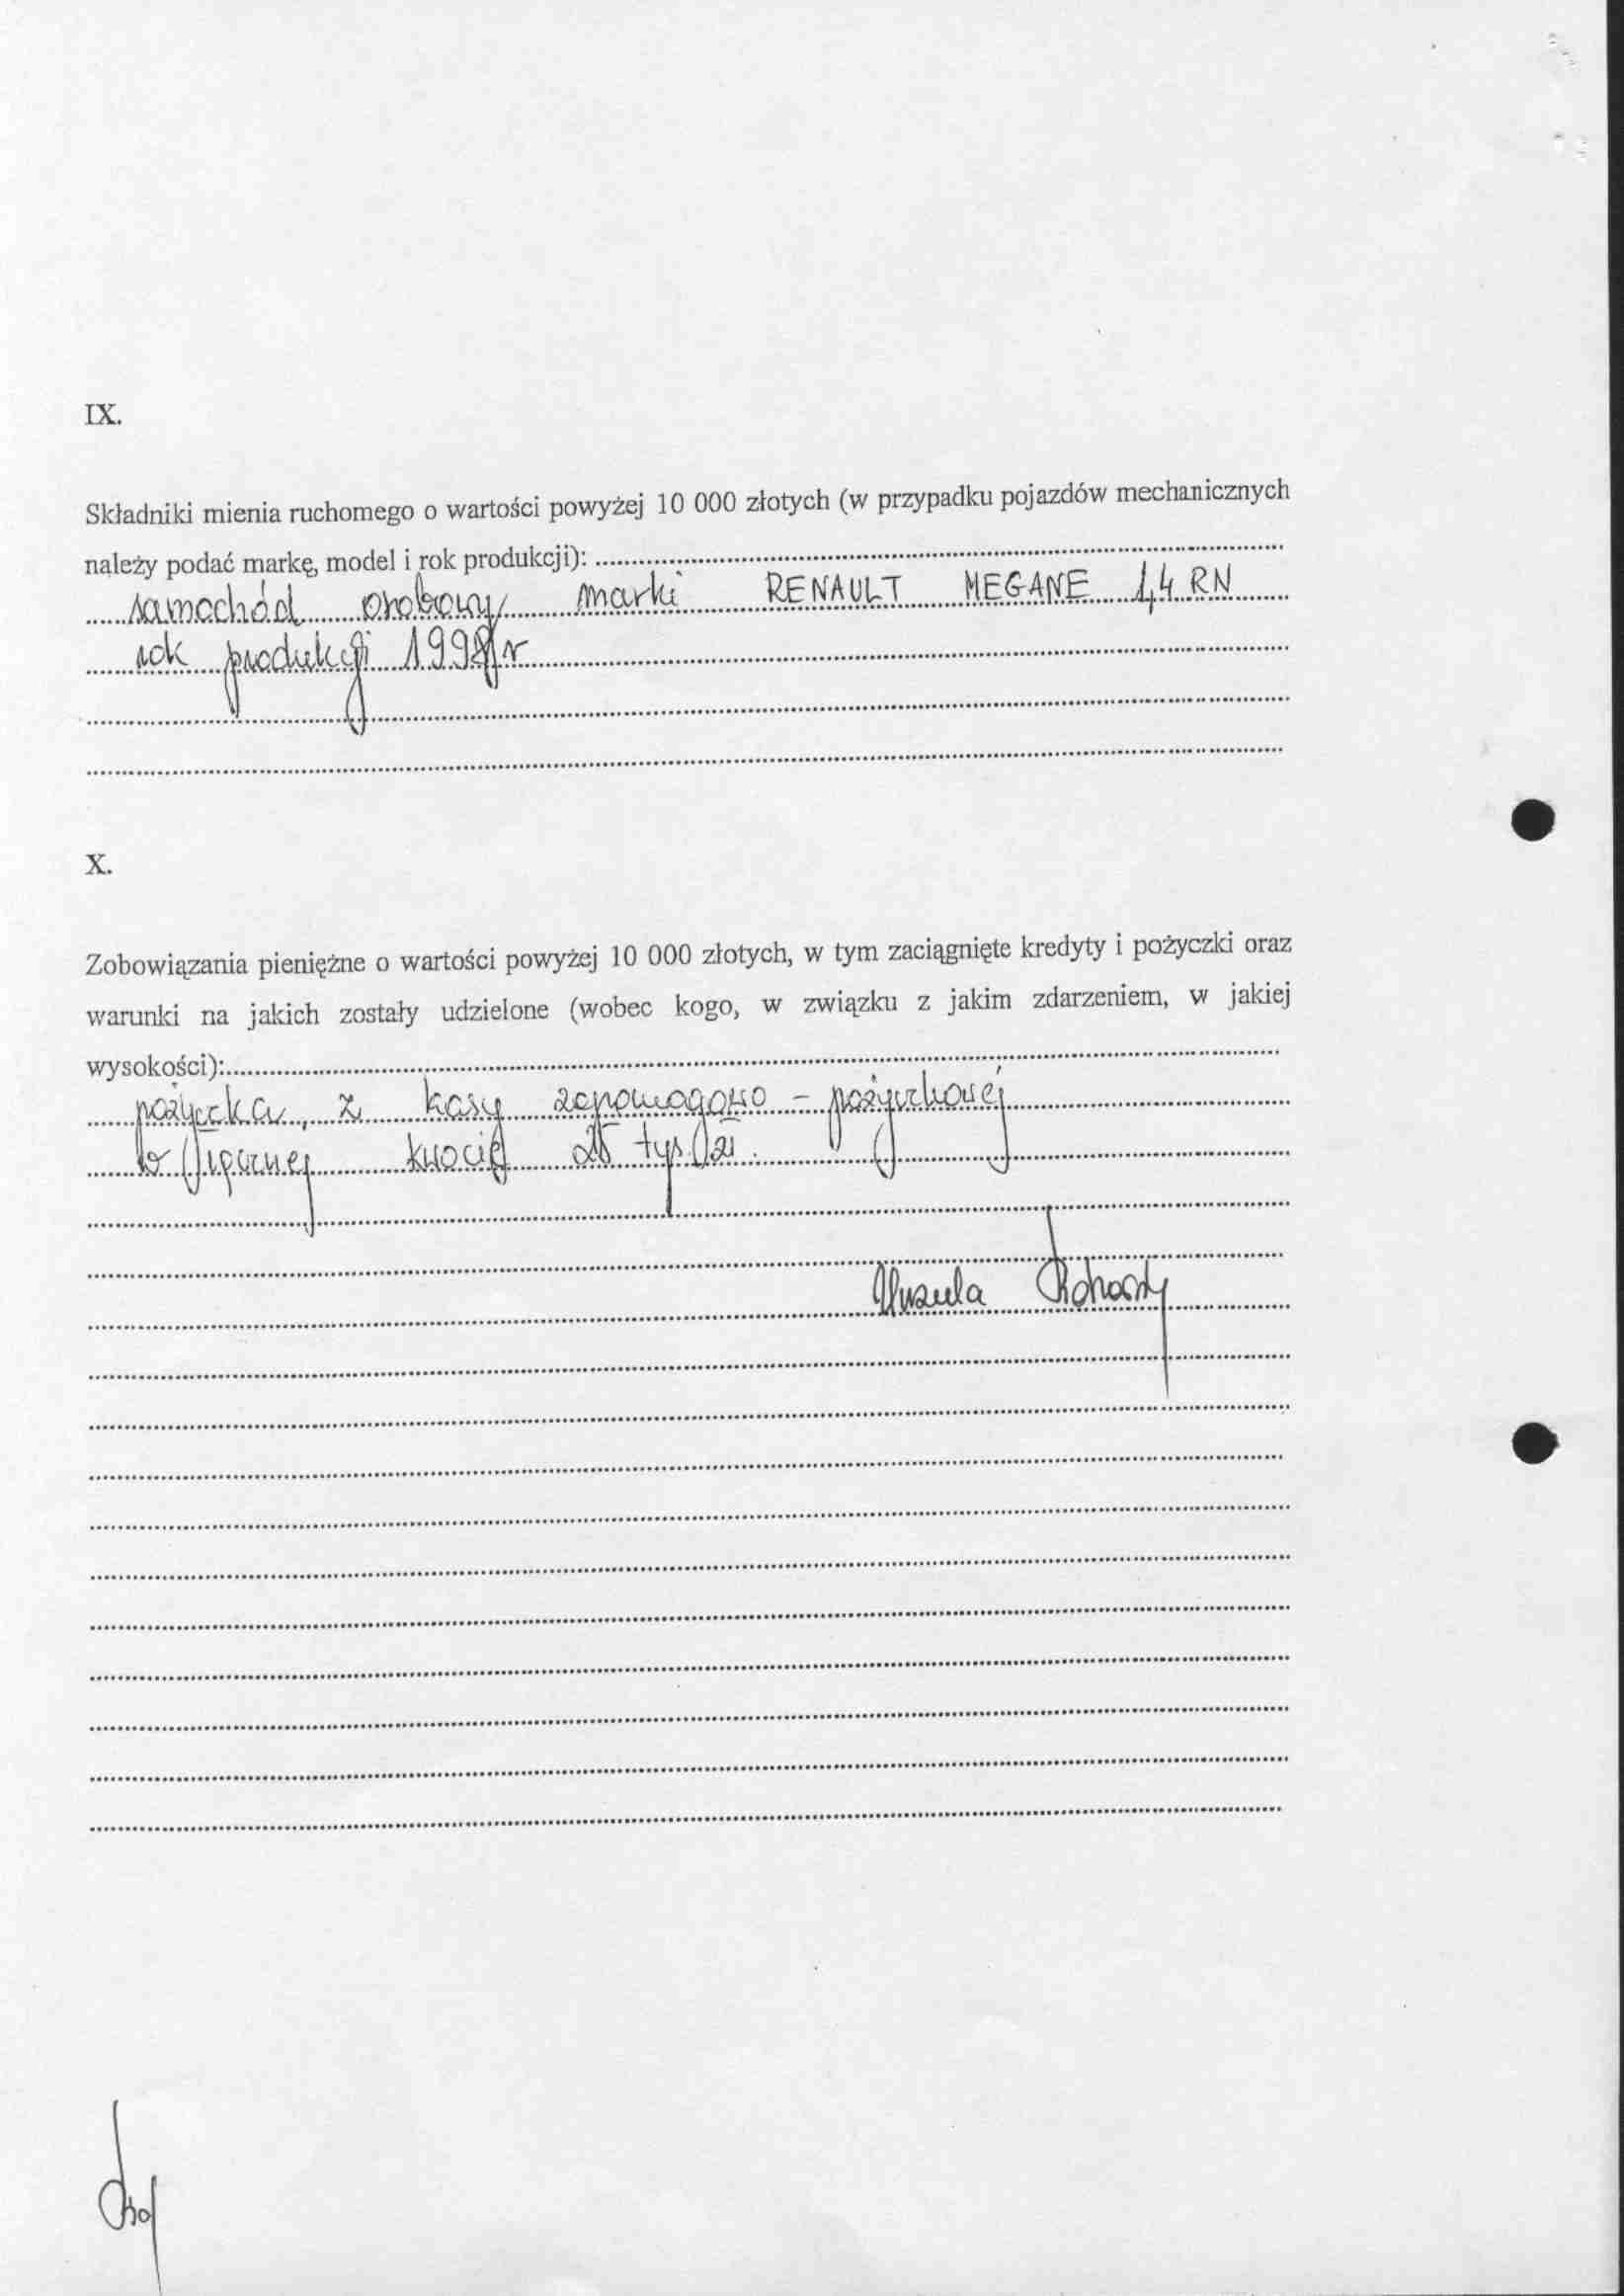 IX.
Składniki mienia ruchomego o wartości powyżej 10 000 złotych (w przypadku pojazdów mechanicznych
należy podać markę, model i rok produkcji):
samochód osobowy marki RENAULT MEGANE 1,4 RN
rok produkcji 1998 r
X.
Zobowiązania pieniężne o wartości powyżej 10 000 złotych, w tym zaciągnięte kredyty i pożyczki oraz
warunki na jakich zostały udzielone (wobec kogo, w związku z jakim zdarzeniem, w jakiej
wysokości):
pożyczka z kasy zapomogowo - pożyczkowej
w łącznej kwocie 25 tys. zł.
Urszula